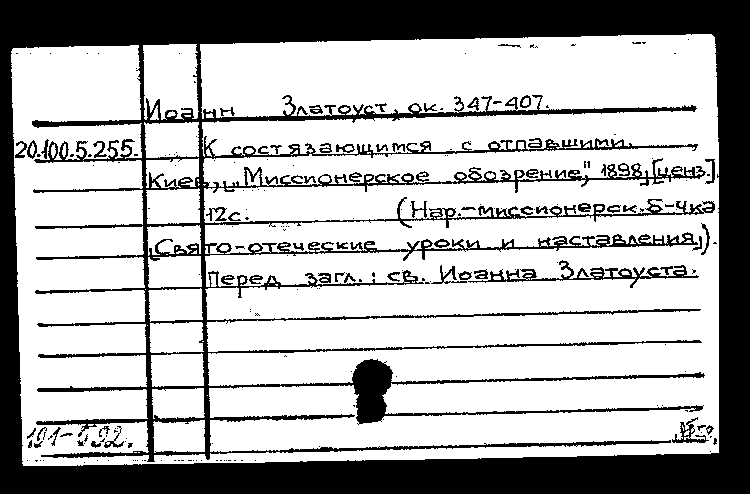 Иоанн Златоуст, ок. 347-407.
20.100.5.255. К состязающимся с отпавшими.
Киев, „Миссионерское обозрение", 1898, [ценз.].
12с. (Нар.-миссионерск. б-чка
„Свято-отеческие уроки и наставления„).
Перед загл.: св. Иоанна Златоуста.
191-592.